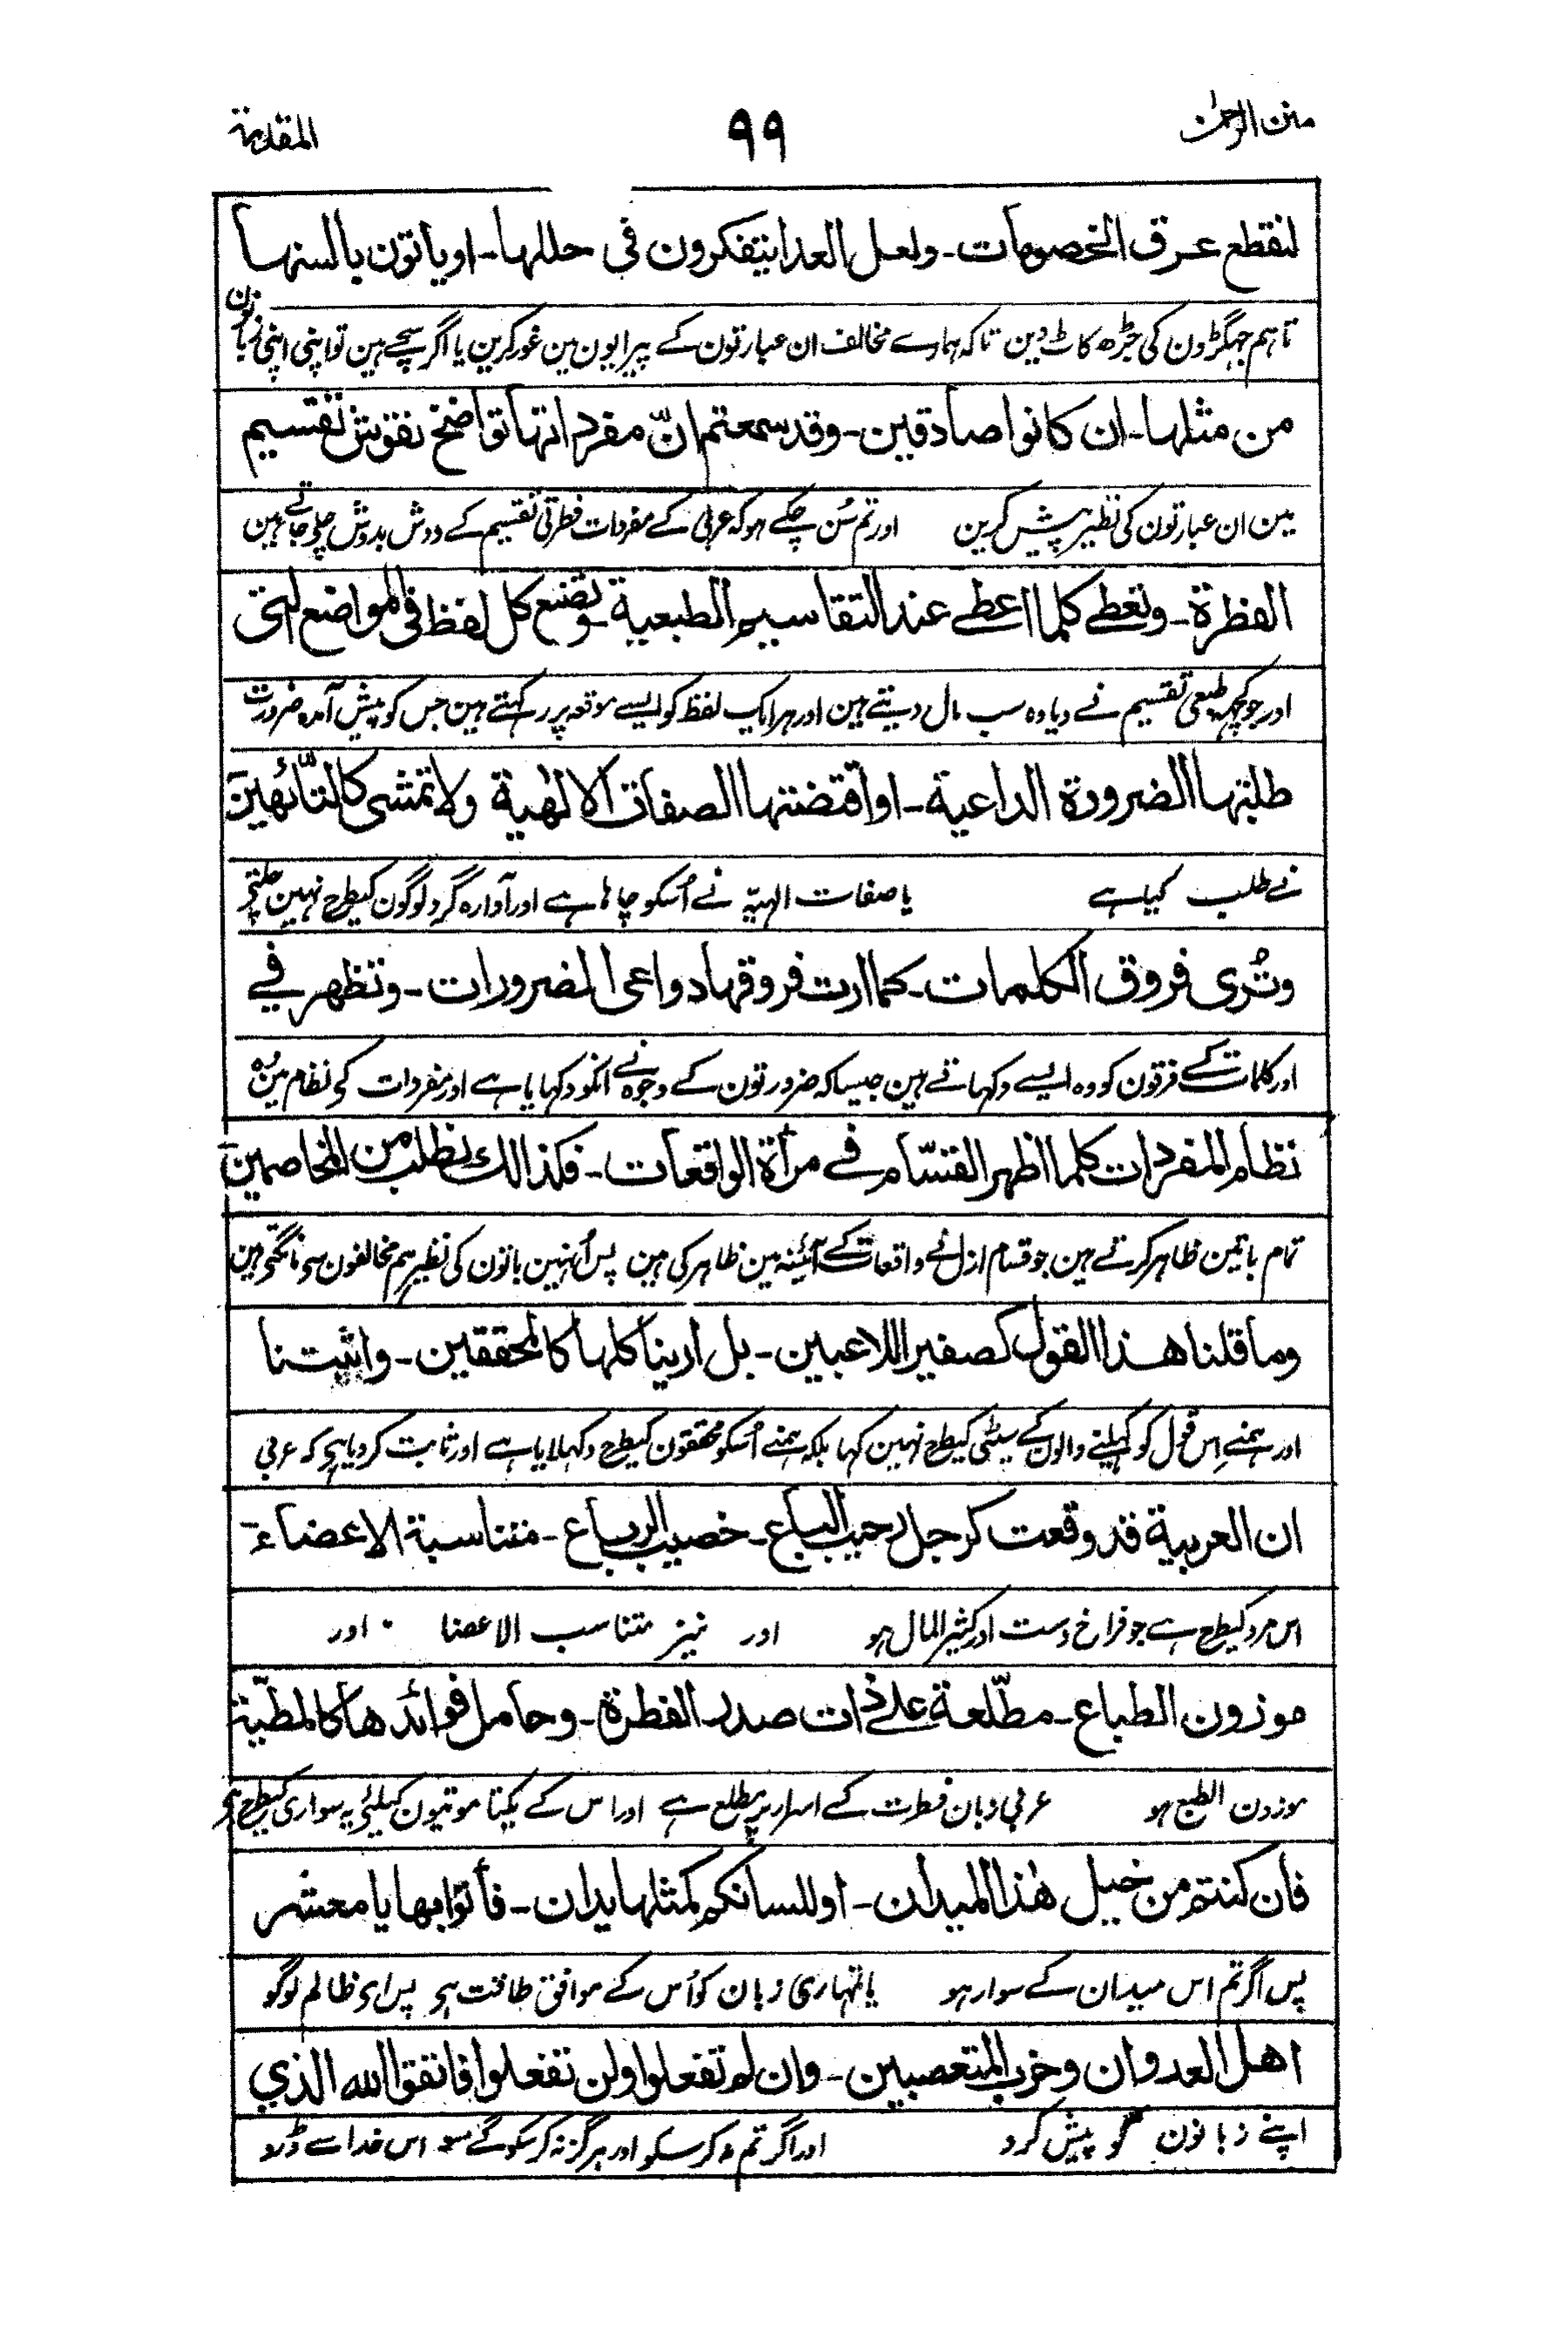 منن الرحمٰن
٩٩
المقدمة
لنقطع عرق الخصومات۔ ولعل العدا يتفكرون في حللها۔ اوياتون بالسنها
تاہم جہگڑون کی جڑھ کاٹ دین تاکہ ہمارے مخالف ان عبارتون کے پیرایون مین غور کرین یا اگر سچے ہین تو اپنی اپنی زبانون
من مثلها۔ ان كانوا صادقين۔ وقد سمعتم انّ مفرداتها تواضخ نقوش تقسيم
مین ان عبارتون کی نظیر پیش کرین اور تم سُن چکے ہو کہ عربی کے مفردات فطرتی تقسیم کے دوش بدوش چلے جاتے ہین
الفطرة۔ وتعطى كلما اعطى عند التقاسيم الطبعية۔ وتضع كل لفظ في المواضع التى
اور جو کچھ طبعی تقسیم نے دیا وہ سب مال دیتے ہین اور ہر ایک لفظ کو ایسے موقعہ پر رکہتے ہین جس کو پیش آمدہ ضرورت
طلبتها الضرورة الداعية۔ او اقتضتها الصفات الالٰهية ولا تمشى كالتّائهين
نے طلب کیا ہے یا صفات الٰہیّہ نے اُسکو چاہا ہے اور آوارہ گرد لوگون کیطرح نہین چلتے
وتُرى فروق الكلمات۔ كما ارت فروقها دواعى الضرورات۔ وتظهر في
اور کلمات کے فرقون کو وہ ایسے دکہاتے ہین جیسا کہ ضرورتون کے وجوہ نے انکو دکہایا ہے اور مفردات کے نظام مین وہ
نظام المفردات كلما اظهر القسّام في مرأة الواقعات۔ فكذالك نطلب من المخاصمين
تمام باتین ظاہر کرتے ہین جو قسام ازل نے واقعات کے آئینہ مین ظاہر کی ہین پس اُنہین باتون کی نظیر ہم مخالفون سے مانگتے ہین
وما قلنا هذا القول كصفير اللاعبين۔ بل ارينا كلها كالمحققين۔ واثبتنا
اور ہمنے اِس قول کو کہیلنے والون کے سیٹی کیطرح نہین کہا بلکہ ہمنے اُسکو محققون کیطرح دکہلایا ہے اور ثابت کر دیا ہے کہ عربی
ان العربية قد وقعت كرجل رحيب الباع۔ خصيب الرباع۔ متناسبة الاعضاء۔
اس مرد کیطرح ہے جو فراخ دست اور کثیر المال ہو اور نیز متناسب الاعضا اور
موزون الطباع۔ مطّلعة على ذات صدر الفطرة۔ وحامل فوائدها كالمطيّة
موزون الطبع ہو عربی زبان فطرت کے اسرار پر مطلع ہے اور اس کے یکتا موتیون کیلئے یہ سواری کیطرح ہے
فان كنتم من خيل هٰذا الميدان۔ او للسانكم كمثلها يدان۔ فأتوا بها يا معشر
پس اگر تم اس میدان کے سوار ہو یا تمہاری زبان کو اُس کے موافق طاقت ہے پس اے ظالم لوگو
اهل العدوان وحزب المتعصبين۔ وان لم تفعلوا ولن تفعلوا فاتقوا الله الذي
اپنے زبانون کو پیش کرو اور اگر تم نہ کر سکو اور ہرگز نہ کر سکو گے سو اس خدا سے ڈرو